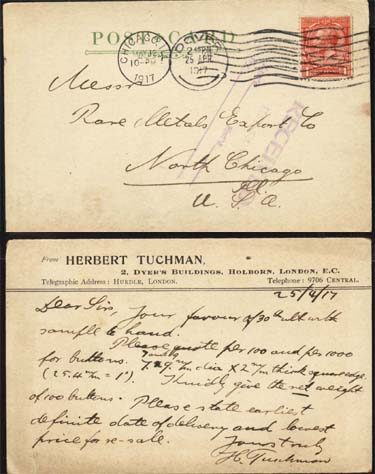 POST CARD
CHICAGO, ILL.
1917
DOVER
25 APR
17
RECEIVED
Messrs
Rare Metals Export Co
North Chicago
Ill.
U. S. A.
From HERBERT TUCHMAN,
2, DYER'S BUILDINGS, HOLBORN, LONDON, E.C.
Telegraphic Address: HURDLE, LONDON. Telephone: 9706 CENTRAL.
25/4/17
Dear Sir, Your favour of 30th ult with
sample to hand.
Please quote per 100 and per 1000
for buttons. 29 m/m dia x 2 m/m thick square edge.
(25.4 m/m = 1") Kindly give the net weight
of 100 buttons. Please state earliest
definite date of delivery and lowest
price for re-sale.
Yours truly
H. Tuchman